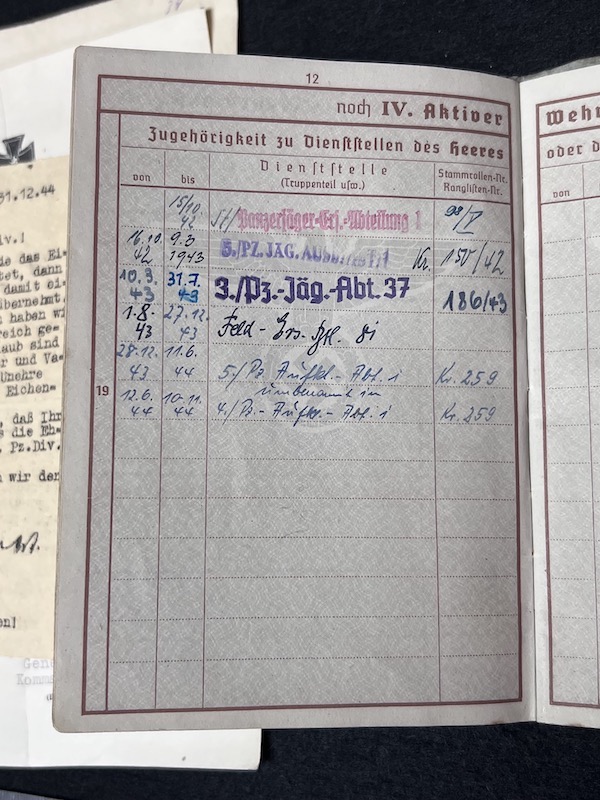 12
noch IV. Aktiver
Zugehörigkeit zu Dienststellen des Heeres
von bis Dienststelle (Truppenteil usw.) Stammrollen-Nr. Ranglisten-Nr.
15/10 42 St/ Panzerjäger-Ers.-Abteilung 1 98/V
16.10. 42 9.3 1943 5./PZ. JÄG. AUSB. ABT. 1 Kr. 150/42
10.3. 43 31.7. 43 3./Pz.-Jäg.-Abt. 37 186/43
1.8. 43 27.12. 43 Feld-Ers. Btl. 81
28.12. 43 11.6. 44 5./Pz. Aufkl.-Abt. 1 Kr. 259
umbenannt in
12.6. 44 10.11. 44 4./Pz.-Aufkl.-Abt. 1 Kr. 259
19
Wehr
oder d
von
31.12.44
iv.!
ie das Ei-
tet, dann
damit ei-
übernehmt,
haben wi
reich ge-
laub sind
er und Va-
Unehre
Eichen-
, daß Ihr
s die Eh-
. Pz.Div.
n wir der
en!
Gene
Komma